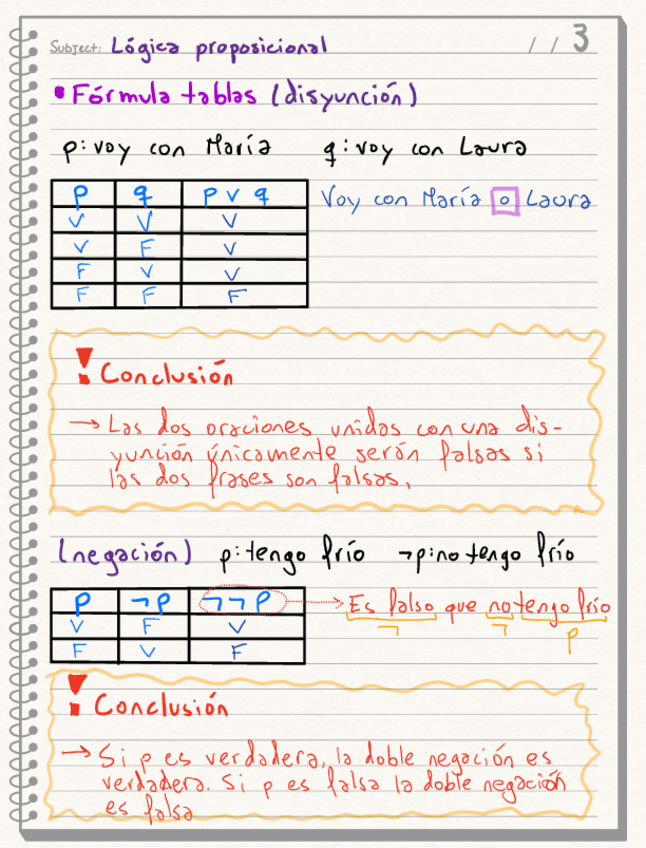 Subject: Lógica proposicional / / 3
• Fórmula tablas (disyunción)
p: voy con María q: voy con Laura
p q p v q Voy con María o Laura
V V V
V F V
F V V
F F F
! Conclusión
→ Las dos oraciones unidas con una dis-
yunción únicamente serán falsas si
las dos frases son falsas.
(negación) p: tengo frío ¬p: no tengo frío
p ¬p ¬¬p → Es falso que no tengo frío
V F V ¬ ¬ p
F V F
! Conclusión
→ Si p es verdadera, la doble negación es
verdadera. Si p es falsa la doble negación
es falsa